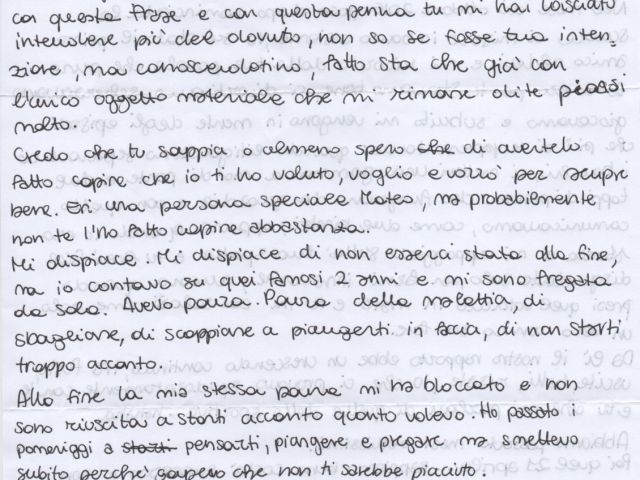 con questa frase e con questa penna tu mi hai lasciato
intendere più del dovuto, non so se fosse tua inten-
zione, ma conoscendotino, fatto sta che già con
l'unico oggetto materiale che mi rimane di te piansi
molto.
Credo che tu sappia o almeno spero che di avertelo
fatto capire che io ti ho voluto, voglio e vorrò per sempre
bene. Eri una persona speciale Mateo, ma probabilmente
non te l'ho fatto capire abbastanza.
Mi dispiace. Mi dispiace di non esserci stata alla fine,
ma io contavo su quei famosi 2 anni e mi sono fregata
da sola. Avevo paura. Paura della malattia, di
sbagliare, di scoppiare a piangerti in faccia, di non starti
troppo accanto.
Alla fine la mia stessa paura mi ha bloccato e non
sono riuscita a starti accanto quanto volevo. Ho passato i
pomeriggi a starti pensarti, piangere e pregare ma smettevo
subito perché sapevo che non ti sarebbe piaciuto.